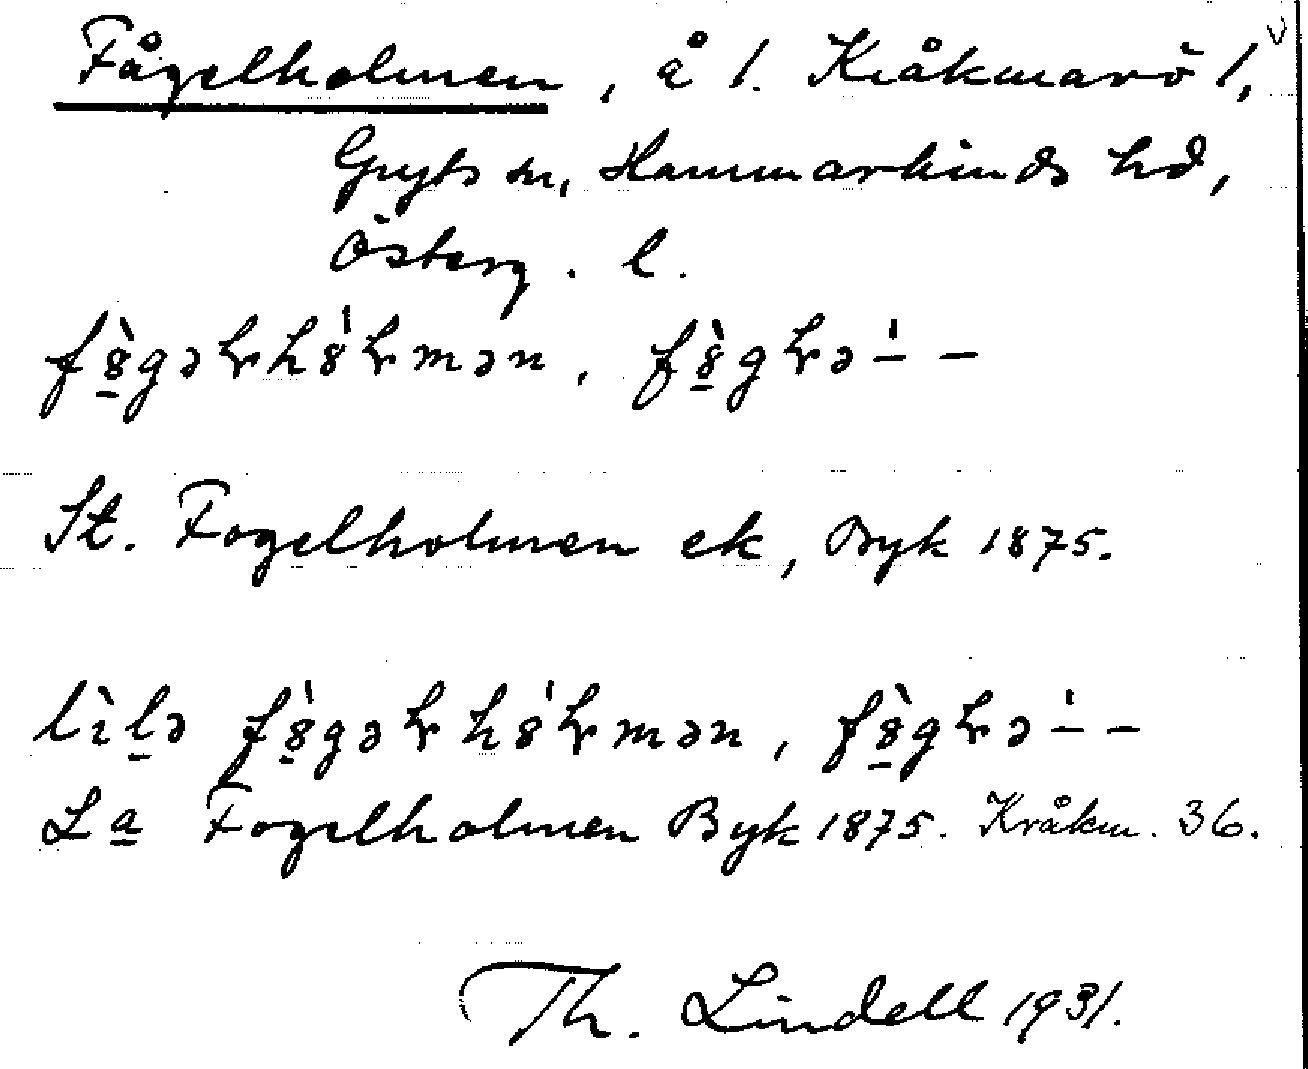 Fågelholmen, å 1. Kråkmarö 1,
Gryts sn, Hammarkinds hd,
Österg. l.
f8̱̀gəɽh8̍ɽmən, f8̱̀gɽə-̍ -
St. Fogelholmen ek, Byk 1875.
lìḻə f8̱̀gəɽh8̍ɽmən, f8̱̀gɽə-̍ -
La Fogelholmen Byk 1875. Kråkm. 36.
Th. Lindell 1931.